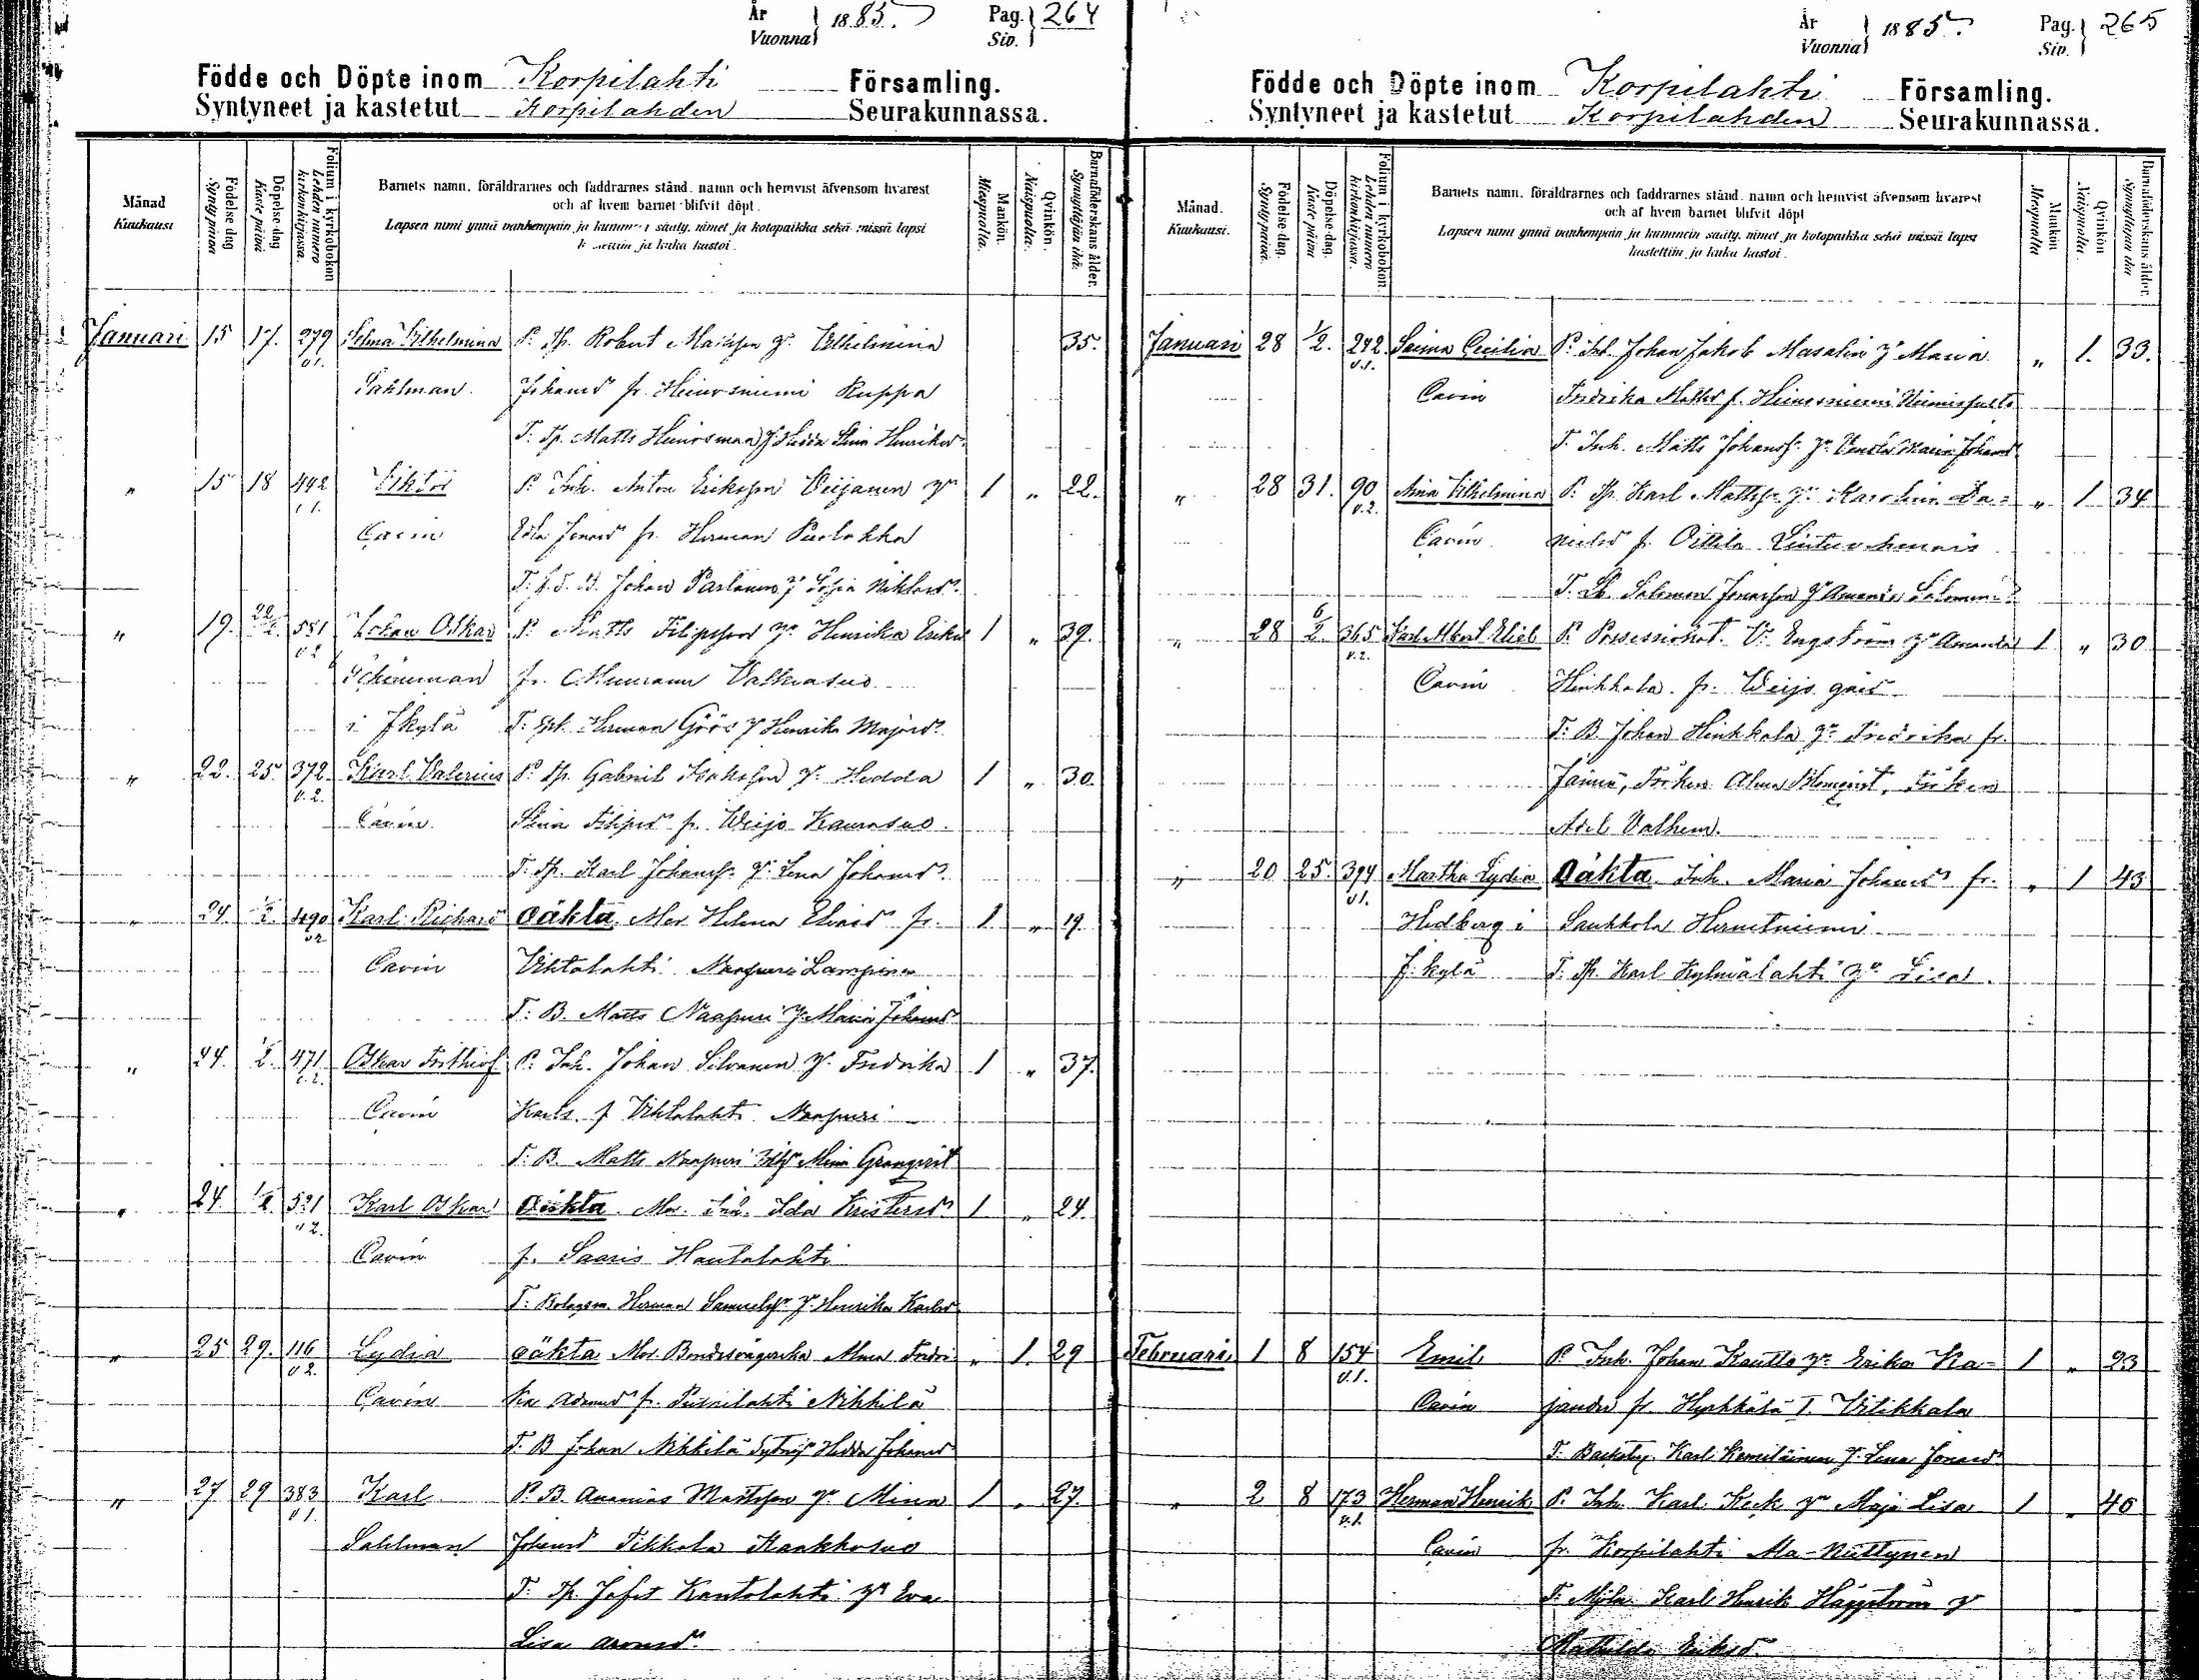 År
Vuonna } 1885.
Pag.
Siv. } 264
Födde och Döpte inom Korpilahti Församling.
Syntyneet ja kastetut Korpilahden Seurakunnassa.
Månad
Kuukausi
Födelse-dag
Syntypäivä
Döpelse-dag
Kastepäivä
Folium i kyrkobokon
Lehden numero kirkonkirjassa.
Barnets namn, föräldrarnes och faddrarnes stånd, namn och hemvist äfvensom hvarest
och af hvem barnet blifvit döpt.
Lapsen nimi ynnä vanhempain ja kummein sääty, nimet ja kotopaikka sekä missä lapsi
kastettiin ja kuka kastoi.
Mankön.
Miespuolta.
Qvinkön.
Naispuolta.
Barnaföderskans ålder.
Synnyttäjän ikä.
Januari 15 17. 279 v1. Selma Vilhelmina P. Tp. Robert Maijsson Vilhelmina 35.
Sahlman. Johansdr fr. Heinosniemi Ruppa
T. Tp. Matts Heinosman Hedda Stina Henriksdr
" 15 18 442 v1. Viktor P. Inh. Anton Eriksson Veijanen 1 " 22.
Cavén Eda Jonasdr fr. Herman
T. Johan Parlanen Sofia Niklasdr
" 19. 551 v2 Johan Oskar P. Matts Filipsson Henrika Eriksdr 1 " 39.
Schönemann fr. Valkeasuo
i Jkylä T. Inh. Herman Göös Henrika Majasdr
" 22. 25. 372 v.2. Karl Valerius P. Tp. Gabriel Isaksson Hedda 1 " 30.
Cavén. Stina Filipsdr fr. Weijo Kaurasuo.
T. Tp. Karl Johansson Lena Johansdr
" 24. 1/2. 490 v2 Karl Richard oäkta Mor Helena Eliasdr fr. 1 " 19.
Cavén Vihtalahti Naapuri Lampinen
T. B. Matts Naapuri Maria Johansdr
" 24. 1/2. 471 v.2. Oskar Frithiof P. Inh. Johan Silvanen Fredrika 1 " 37.
Cavén Karls. f Vihtalahti Naapuri
T. B. Matts Naapuri Mina Granqvist
" 24. 1/2 521 v2. Karl Oskar oäkta Mor. Inh. Ida Kristersdr 1 " 24.
Cavén f. Saaris Hautalahti
T. Bolagsm. Herman Samuelsson Henrika Karlsdr
" 25 29. 116 v2. Lydia oäkta Mor. Bondesångerska Alma Fredri- " 1. 29
Cavén ka Adamsdr fr. Putkilahti Nikkilä
T. B Johan Nikkilä Hedda Johansdr
" 27 29 383 v1. Karl P. B. Ananias Mattsson Mina 1 " 27.
Sahlman Johansdr Tikkala Kaakkosuo
T. Tp. Jafet Kantolahti Eva
Lisa Aronsdr
År
Vuonna } 1885.
Pag.
Siv. } 265
Födde och Döpte inom Korpilahti Församling.
Syntyneet ja kastetut Korpilahden Seurakunnassa.
Månad.
Kuukausi.
Födelse-dag.
Syntypäivä.
Döpelse-dag.
Kaste päivä
Folium i kyrkobokon.
Lehden numero kirkonkirjassa.
Barnets namn, föräldrarnes och faddrarnes stånd, namn och hemvist äfvensom hvarest
och af hvem barnet blifvit döpt
Lapsen nimi ynnä vanhempain ja kummein sääty, nimet ja kotopaikka sekä missä lapsi
kastettiin ja kuka kastoi.
Mankön
Miespuolta
Qvinkön
Naispuolta
Barnaföderskans ålder.
Synnyttäjän ikä
Januari 28 1/2. 242 v.1. Saima Cecilia P. Inh. Johan Jakob Masalin Maria " 1. 33.
Cavén Fredrika Mattsdr f. Heinosniemi Niinisuhta
T. Inh. Matts Johansson Maria Johansdr
" 28 31. 90 v.2. Mina Vilhelmina P. Tp. Karl Mattsson Karolina Da= " 1 34
Cavén nielsdr f. Oittila
T. Salomon Jonasson Amanda
" 28 6/2. 365 v.2. Karl Albert Eliel P. Possessionat. V. Engström Amanda 1 " 30
Cavén Hinkkala fr. Weijo gård
T. B Johan Hinkkala Fredrika fr.
Jämsä, Fröken Alma Blomqvist, Fröken
Adel Valhen.
" 20 25. 394 v1. Martha Lydia Oäkta Inh. Maria Johansdr fr. " 1 43
Hedberg i Saukkola Hernetniemi
J.kylä T. Tp. Karl Kylmälahti Lisa.
Februari 1 8 154 v.1. Emil P. Inh. Johan Kautto Erika Ka= 1 " 23
Cavén jander fr. Hyrkkälä I. Vitikkala
T. Karl Kemiläinen Lena Jonasdr
" 2 8 173 v.1. Herman Henrik P. Inh. Karl Keck Maja Lisa 1 " 46
Cavén fr. Korpilahti Ala-Nuttynen
T. Karl Henrik Häggström
Mathilda Eriksdr